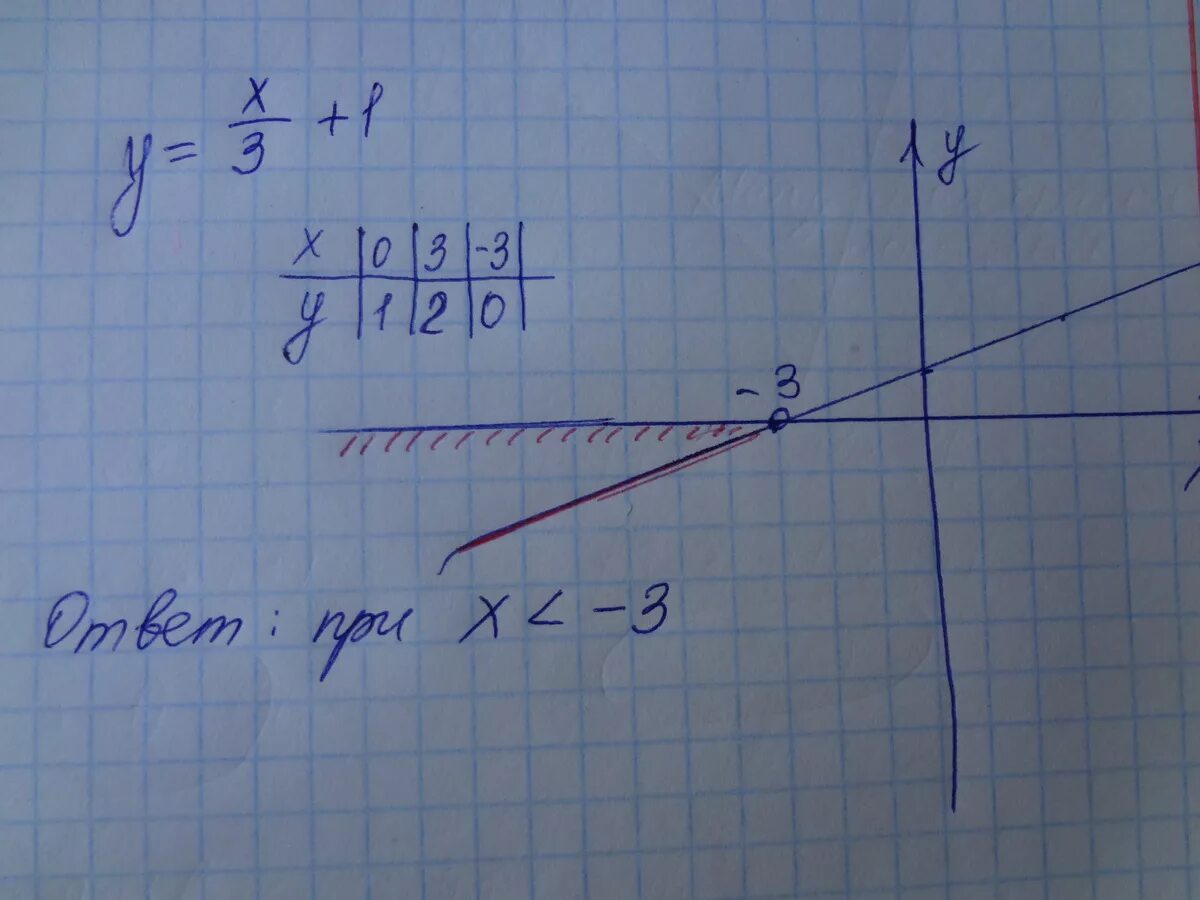 y = x/3 + 1
x | 0 | 3 | -3 |
y | 1 | 2 | 0 |
y
-3
Ответ: при x < -3